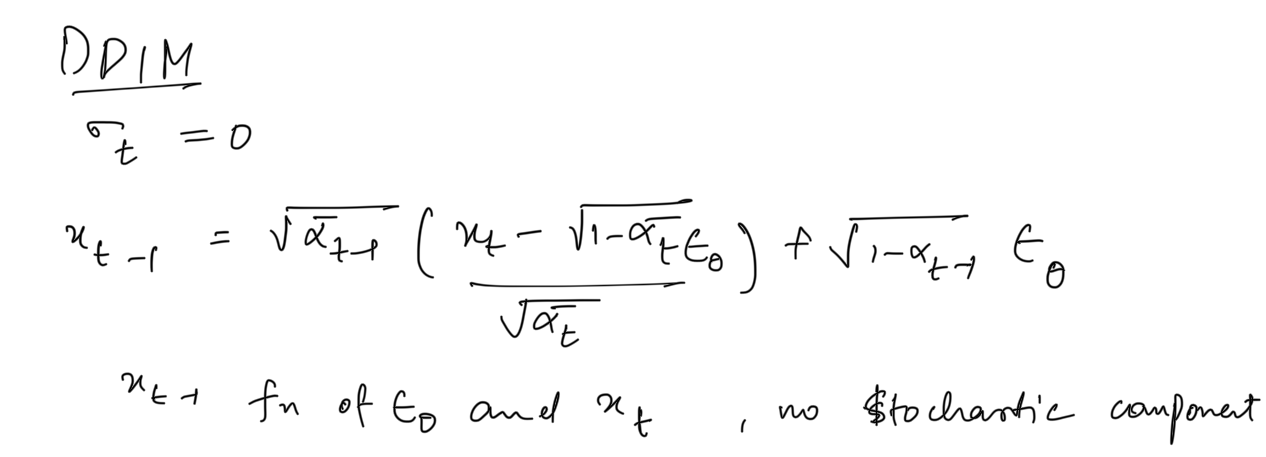 DDIM
σ_t = 0
x_{t-1} = √ᾱ_{t-1} ( (x_t - √(1-ᾱ_t) ε_θ) / √ᾱ_t ) + √(1-α_{t-1}) ε_θ
x_{t-1} fn of ε_θ and x_t , no stochastic component